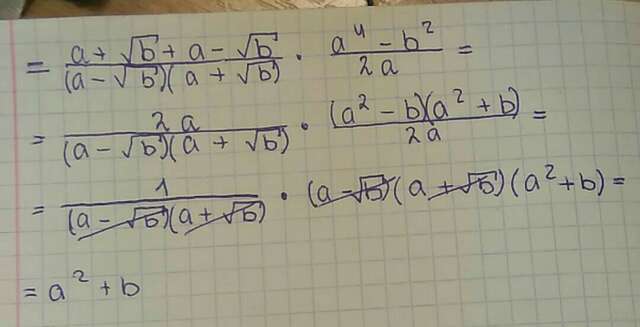 = (a + √b + a - √b)/((a - √b)(a + √b)) · (a⁴ - b²)/(2a) =
= 2a/((a - √b)(a + √b)) · ((a² - b)(a² + b))/(2a) =
= 1/((a - √b)(a + √b)) · (a - √b)(a + √b)(a² + b) =
= a² + b